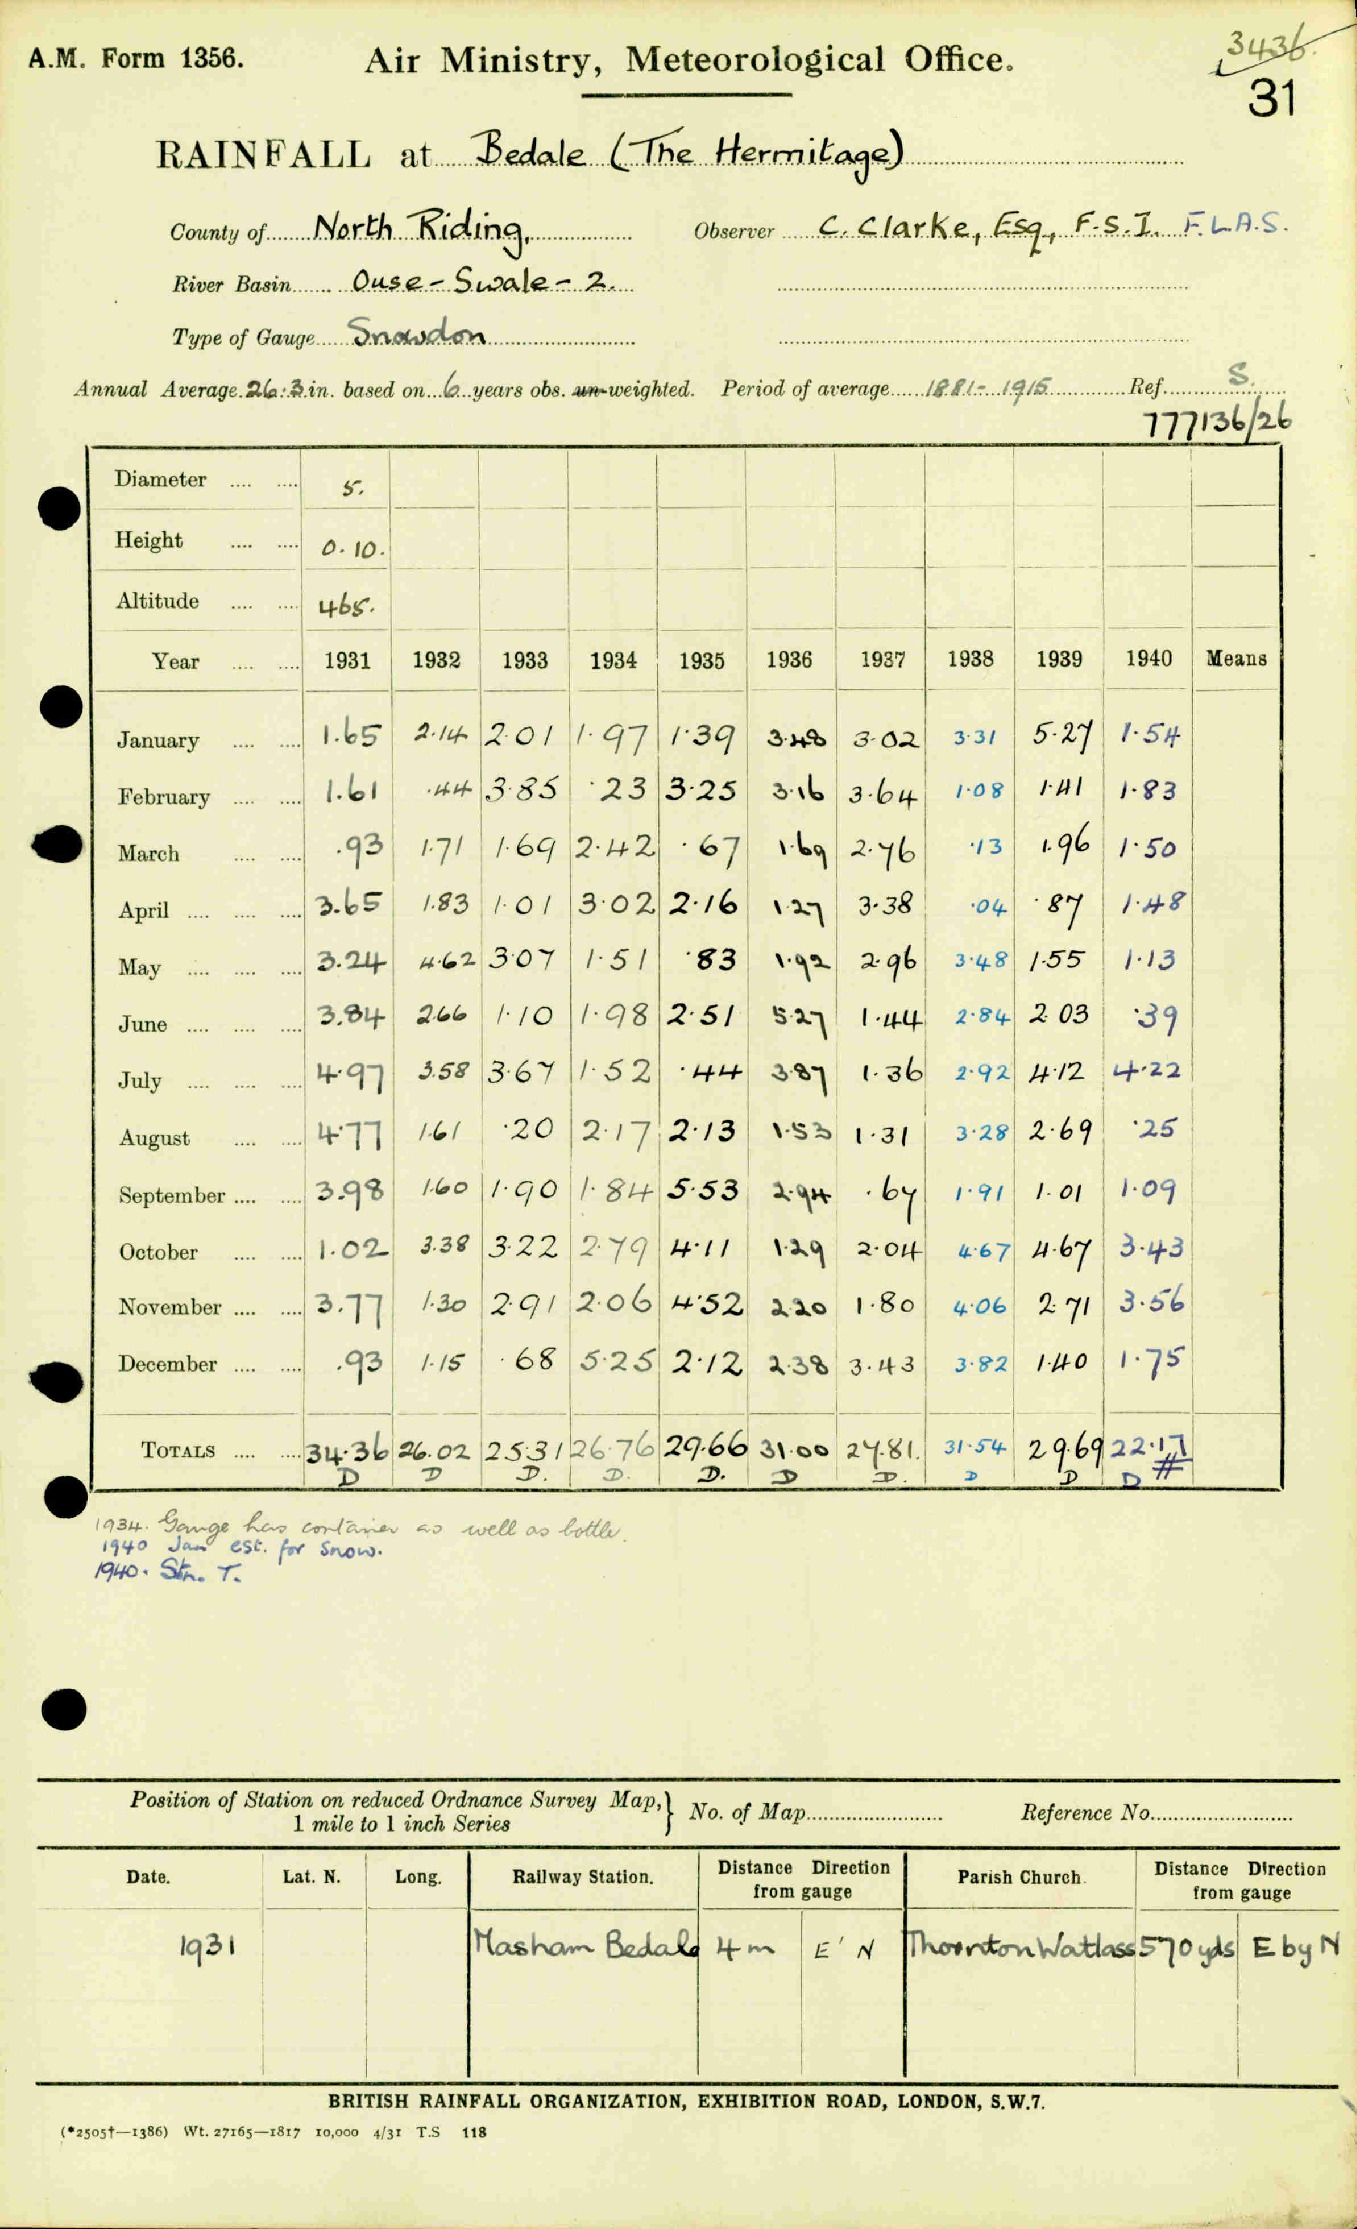 A.M. Form 1356. Air Ministry, Meteorological Office. 3436.
31
RAINFALL at Bedale (The Hermitage)
County of North Riding, Observer C. Clarke, Esq., F.S.I. F.L.A.S.
River Basin Ouse - Swale - 2.
Type of Gauge Snowdon
Annual Average 26.3 in. based on 6 years obs. un-weighted. Period of average 1881-1915 Ref. S.
777136/26
Diameter 5.
Height 0.10.
Altitude 465.
Year 1931 1932 1933 1934 1935 1936 1937 1938 1939 1940 Means
January 1.65 2.14 2.01 1.97 1.39 3.48 3.02 3.31 5.27 1.54
February 1.61 .44 3.85 .23 3.25 3.16 3.64 1.08 1.41 1.83
March .93 1.71 1.69 2.42 .67 1.69 2.76 .13 1.96 1.50
April 3.65 1.83 1.01 3.02 2.16 1.27 3.38 .04 .87 1.48
May 3.24 4.62 3.07 1.51 .83 1.92 2.96 3.48 1.55 1.13
June 3.84 2.66 1.10 1.98 2.51 5.27 1.44 2.84 2.03 .39
July 4.97 3.58 3.67 1.52 .44 3.87 1.36 2.92 4.12 4.22
August 4.77 1.61 .20 2.17 2.13 1.53 1.31 3.28 2.69 .25
September 3.98 1.60 1.90 1.84 5.53 2.94 .67 1.91 1.01 1.09
October 1.02 3.38 3.22 2.79 4.11 1.29 2.04 4.67 4.67 3.43
November 3.77 1.30 2.91 2.06 4.52 2.20 1.80 4.06 2.71 3.56
December .93 1.15 .68 5.25 2.12 2.38 3.43 3.82 1.40 1.75
TOTALS 34.36 26.02 25.31 26.76 29.66 31.00 27.81. 31.54 29.69 22.17
D D D. D. D. D D. D D D #
1934. Gauge has container as well as bottle.
1940 Jan est. for snow.
1940. Stn. T.
Position of Station on reduced Ordnance Survey Map, } No. of Map Reference No.
1 mile to 1 inch Series
Date. Lat. N. Long. Railway Station. Distance Direction from gauge Parish Church. Distance Direction from gauge
1931 Masham Bedale 4 m E' N Thornton Watlass 570 yds E by N
BRITISH RAINFALL ORGANIZATION, EXHIBITION ROAD, LONDON, S.W.7.
(*2505†—1386) Wt. 27165—1817 10,000 4/31 T.S 118